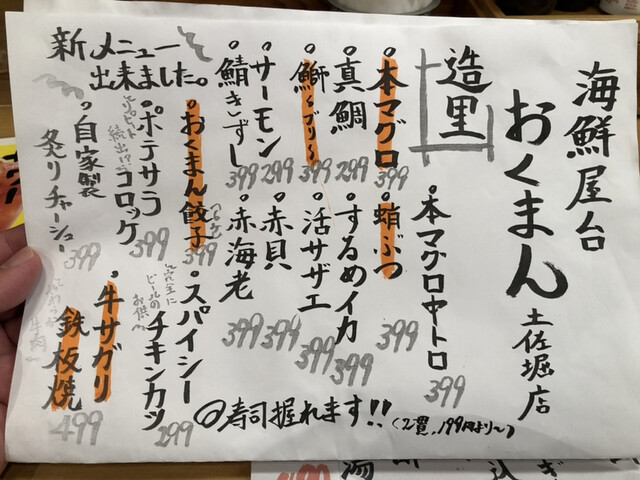 海鮮屋台
おくまん
土佐堀店
造里
・本マグロ 399
・真鯛 299
・鰤〜ブリ〜 399
・サーモン 299
・鯖きずし 399
・本マグロ中トロ 399
・蛸ぶつ 399
・するめイカ 399
・活サザエ 399
・赤貝 399
・赤海老 399
新メニュー
出来ました。
・おくまん餃子 399
・ポテサラ
コロッケ 399
・自家製
炙りチャーシュー 399
・スパイシー
チキンカツ 299
完全に
ビールの
お供〜
・牛サガリ
鉄板焼 499
◎寿司握れます!!(2貫、199円より〜)